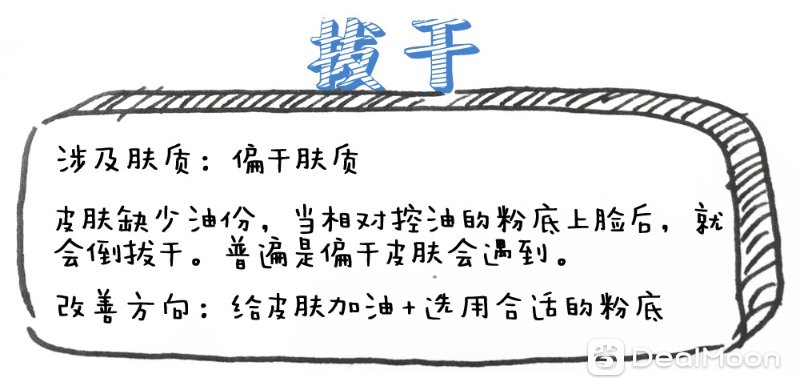 拔干
涉及肤质：偏干肤质
皮肤缺少油份，当相对控油的粉底上脸后，就
会倒拔干。普遍是偏干皮肤会遇到。
改善方向：给皮肤加油+选用合适的粉底
DealMoon